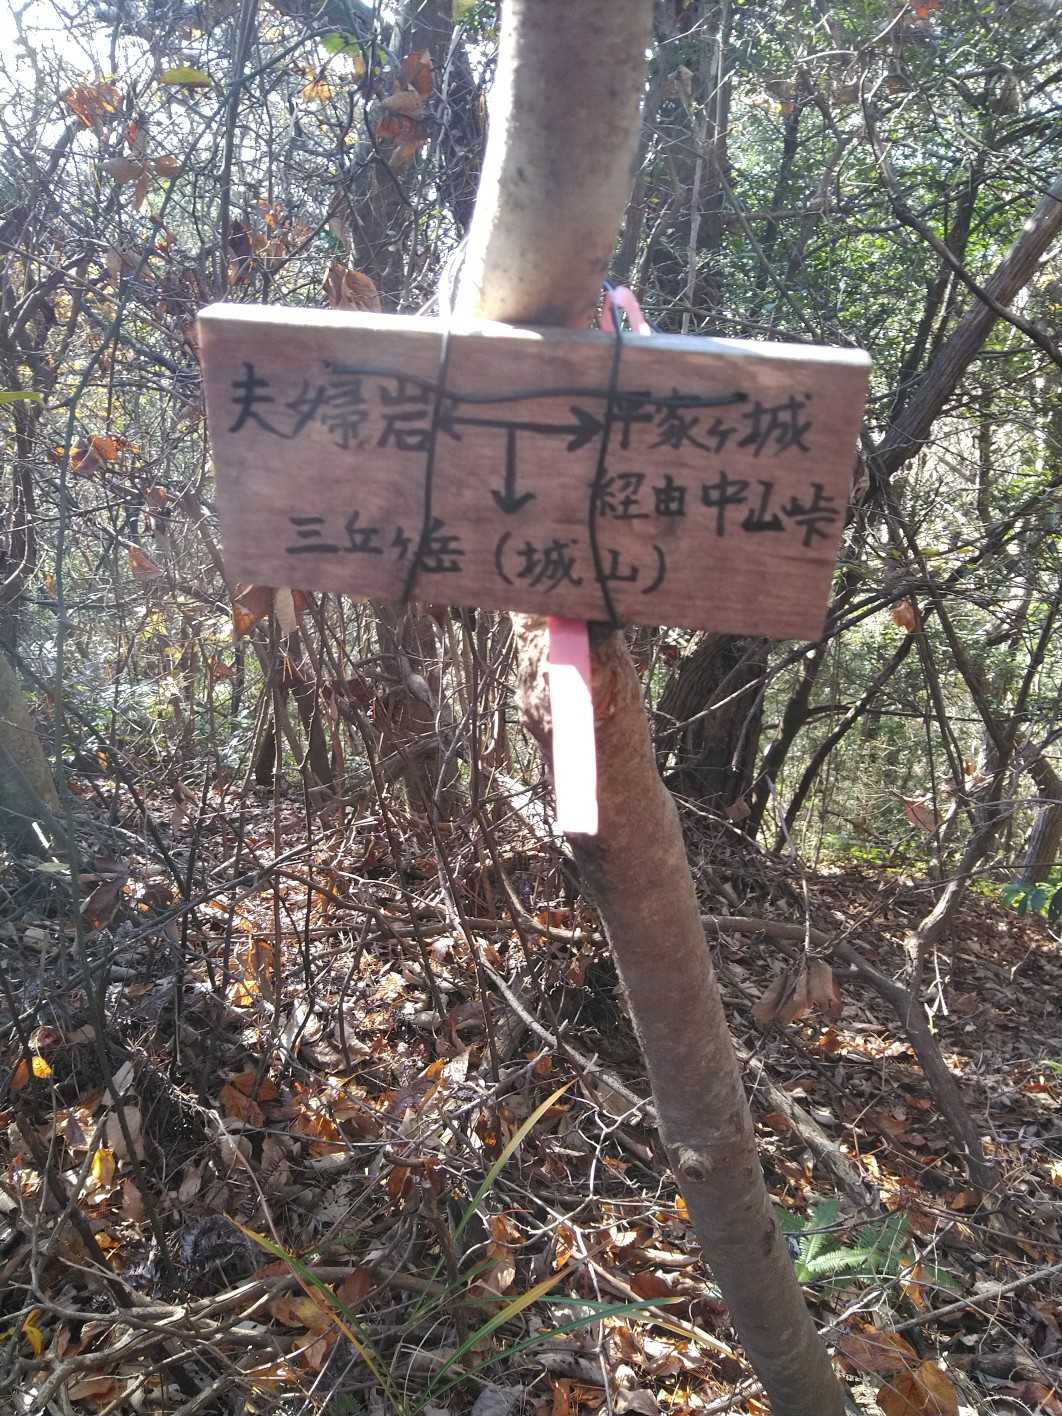 夫婦岩 ↔ 平家ヶ城
↓ 経由中山峠
三丘ヶ岳(城山)